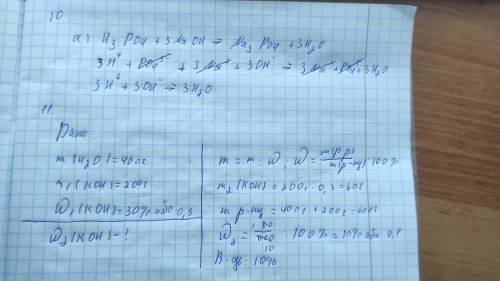 10
а) H₃PO₄ + 3NaOH → Na₃PO₄ + 3H₂O
3H⁺ + PO₄³⁻ + 3Na⁺ + 3OH⁻ → 3Na⁺ + PO₄³⁻ + 3H₂O
3H⁺ + 3OH⁻ → 3H₂O
11.
Дано
m(H₂O) = 400г
m₁(KOH) = 200г
W₁(KOH) = 30% або 0,3
W₂(KOH) - ?
m = m · W; W = m(р.р) / m(р-ну) · 100%
m₂(KOH) = 200г · 0,3 = 60г
m р-ну = 400г + 200г = 600г
W₂ = 60 / 600 · 100% = 10% або 0,1
В-дь: 10%